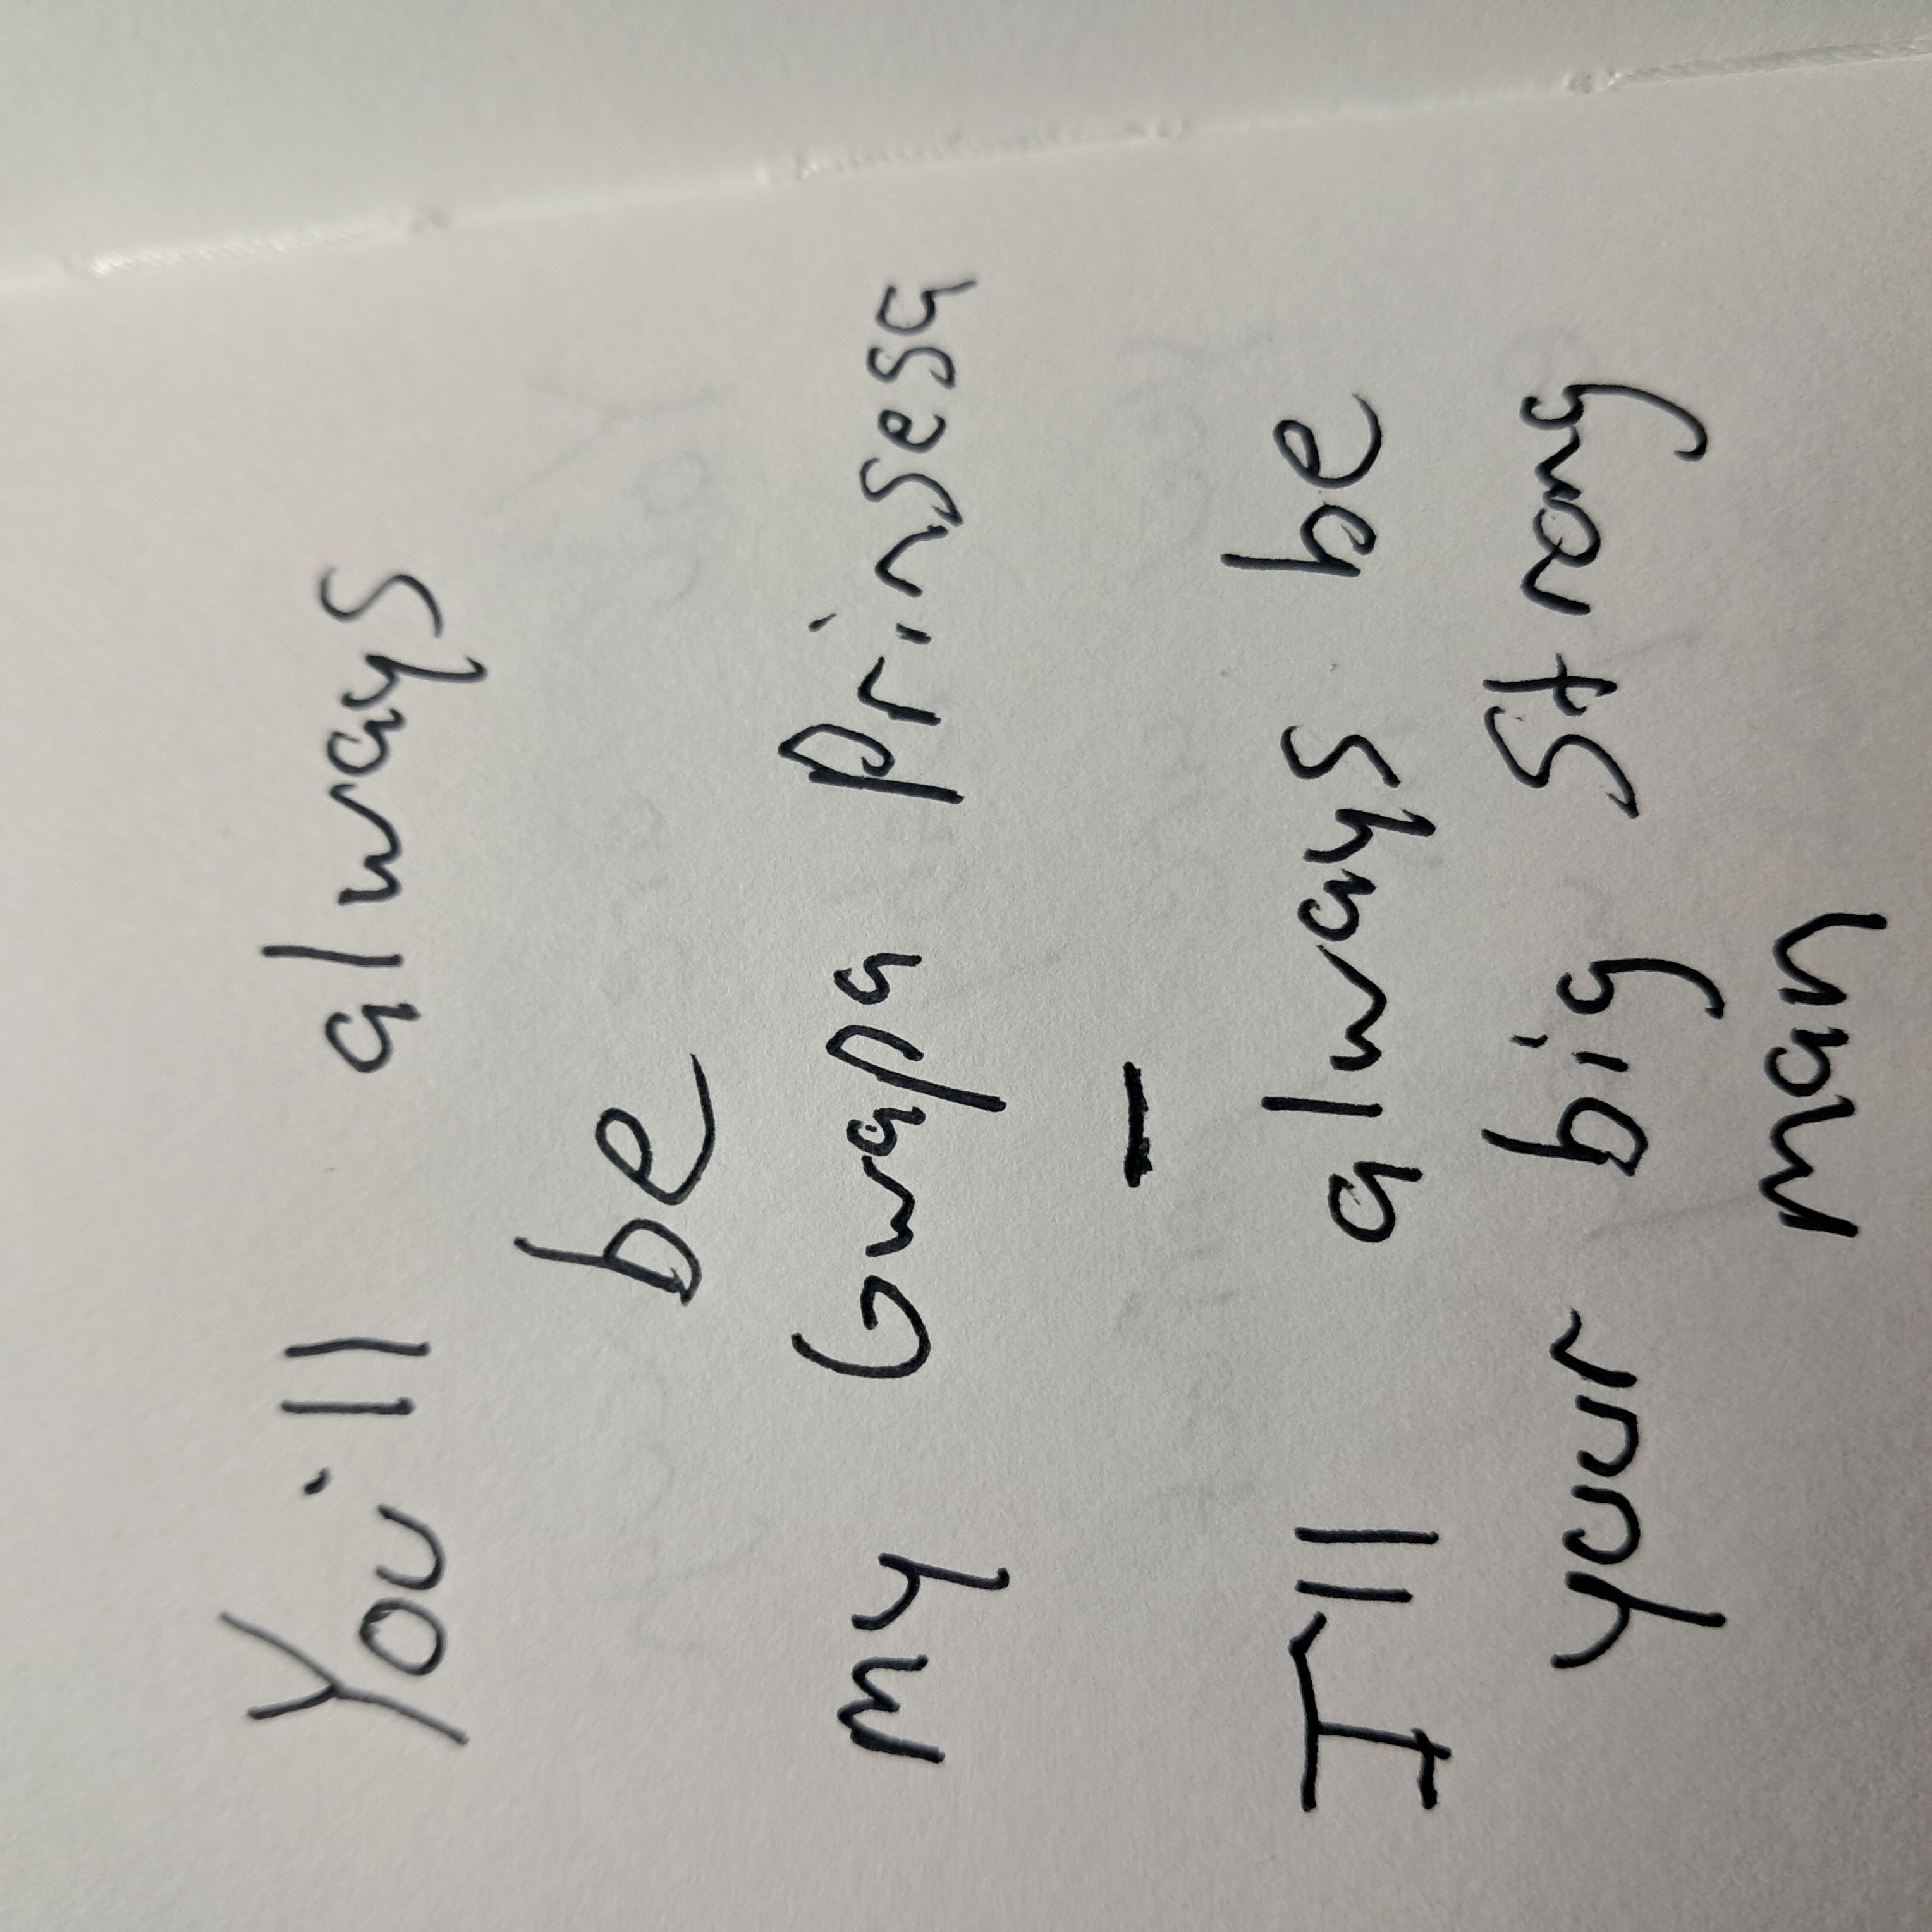 You'll always
be
my Gwapa Prinsesa
-
I'll always be
your big strong
man